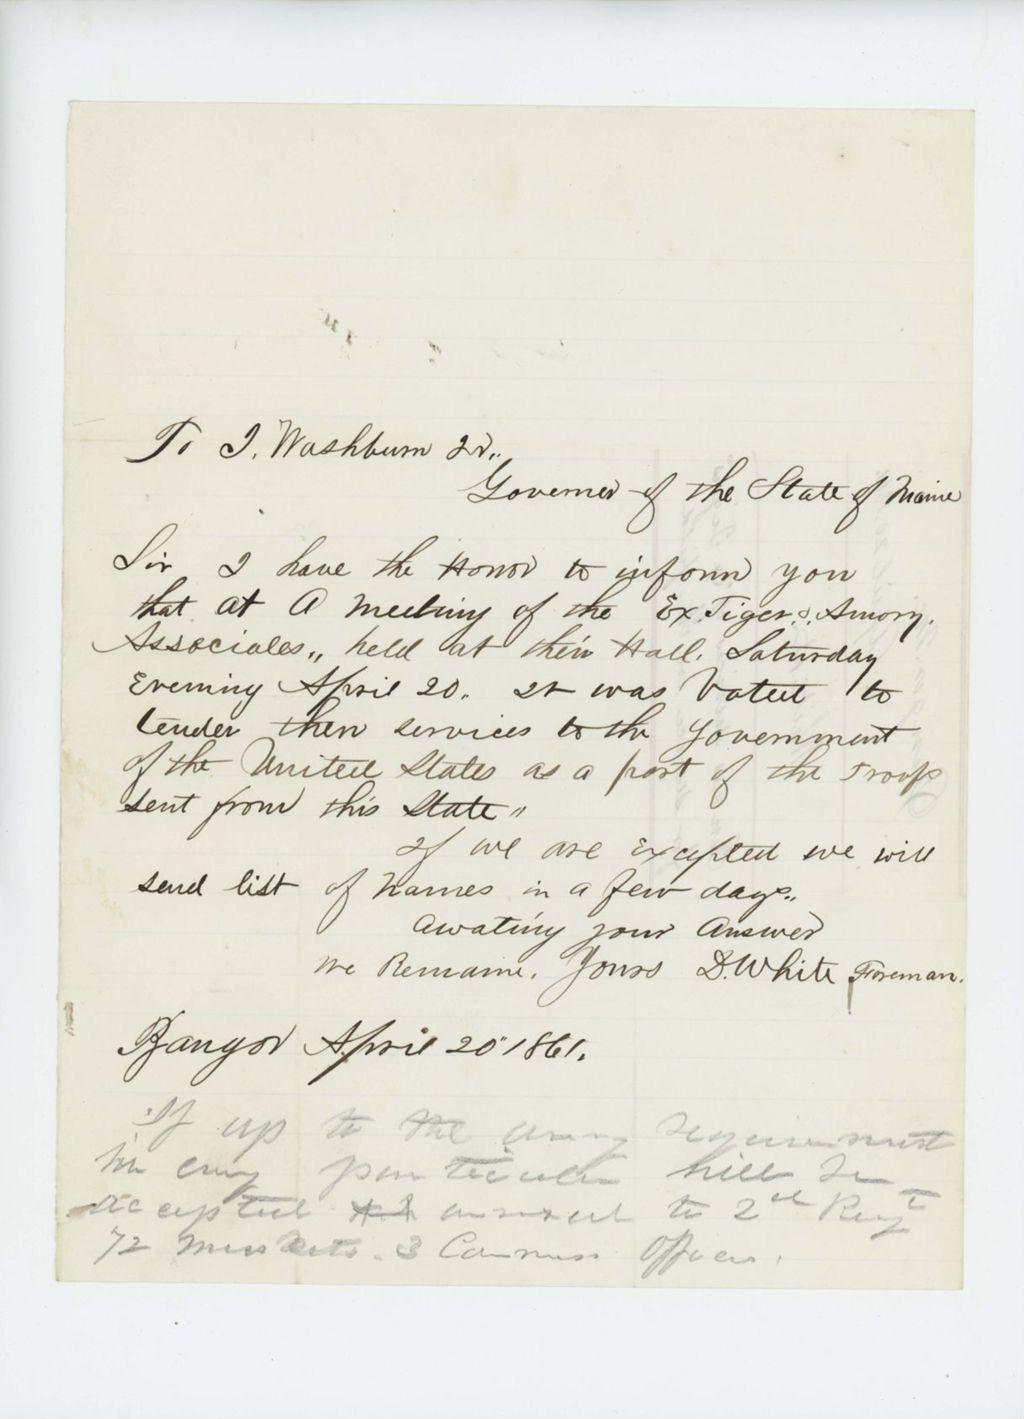 To I. Washburn Jr.,
Governer of the State of Maine
Sir I have the Honor to inform you
that at A Meeting of the Ex. Tiger,s, Amory.
Associates,, held at their Hall. Saturday
Evening April 20. It was Voted to
tender their services to the Government
of the United States as a part of the Troops
sent from this State"
If we are Excepted we will
send list of Names in a few days,,
Awating your Answer
We Remaine. Yours D. White Foreman.
Bangor April 20" 1861.
If up to the army requirement
in every particular will be
accepted annexed to 2d Regt
72 Muskets. 3 Commiss Officers.